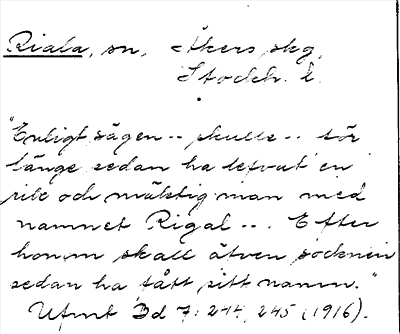 Riala, sn, Åkers skg,
Stockh. l.
"Enligt sägen -- skulle -- för
länge sedan ha lefvat en
rik och mäktig man med
namnet Rigal --. Efter
honom skall äfven socknen
sedan ha fått sitt namn."
Ufmt Bd 7: 244, 245 (1916).